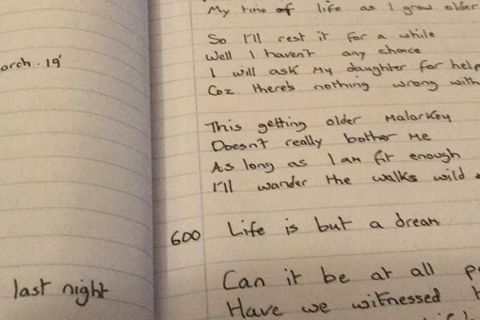 My time of life as I grow older
So I'll rest it for a while
Well I haven't any choice
I will ask my daughter for help
Coz there's nothing wrong with
This getting older Malarkey
Doesn't really bother me
As long as I am fit enough
I'll wander the walks wild
600 Life is but a dream
Can it be at all
Have we witnessed
arch. 19'
last night